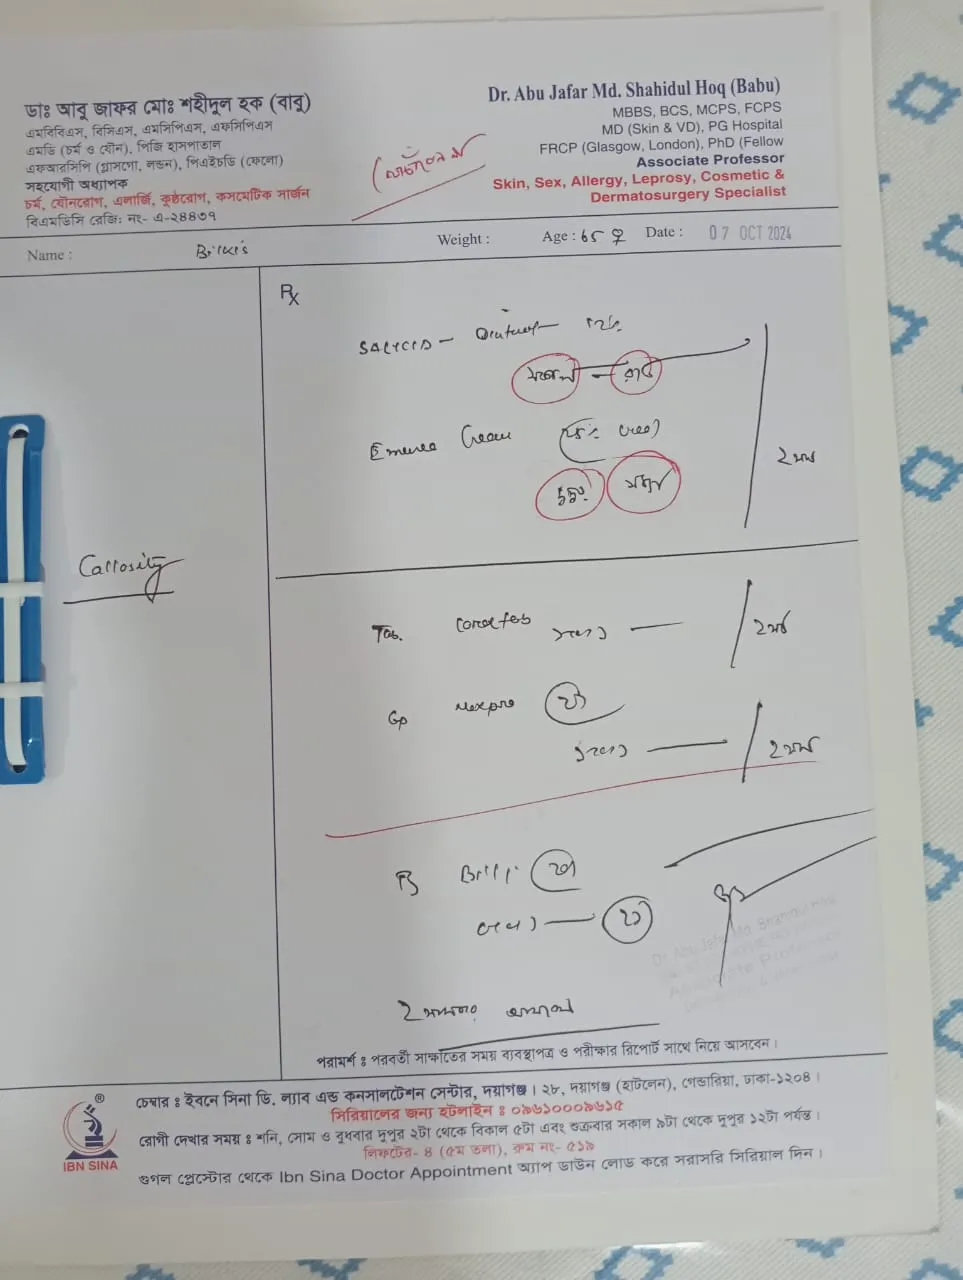 ডাঃ আবু জাফর মোঃ শহীদুল হক (বাবু)
এমবিবিএস, বিসিএস, এমসিপিএস, এফসিপিএস
এমডি (চর্ম ও যৌন), পিজি হাসপাতাল
এফআরসিপি (গ্লাসগো, লন্ডন), পিএইচডি (ফেলো)
সহযোগী অধ্যাপক
চর্ম, যৌনরোগ, এলার্জি, কুষ্ঠরোগ, কসমেটিক সার্জন
বিএমডিসি রেজি: নং- এ-২৪৪৩৭
Dr. Abu Jafar Md. Shahidul Hoq (Babu)
MBBS, BCS, MCPS, FCPS
MD (Skin & VD), PG Hospital
FRCP (Glasgow, London), PhD (Fellow
Associate Professor
Skin, Sex, Allergy, Leprosy, Cosmetic &
Dermatosurgery Specialist
Name : Bilkis Weight : Age : 65 ♀ Date : 07 OCT 2024
Rx
সকাল — রাত
Cream
দুপুর সন্ধ্যা
২ মাস
Callosity
Tab.
২ মাস
Cap Nexpro 20
২ মাস
পরামর্শ : পরবর্তী সাক্ষাতের সময় ব্যবস্থাপত্র ও পরীক্ষার রিপোর্ট সাথে নিয়ে আসবেন।
IBN SINA
চেম্বার : ইবনে সিনা ডি. ল্যাব এন্ড কনসালটেশন সেন্টার, দয়াগঞ্জ। ২৮, দয়াগঞ্জ (হাটলেন), গেন্ডারিয়া, ঢাকা-১২০৪।
সিরিয়ালের জন্য হটলাইন : ০৯৬১০০০৯৬১৫
রোগী দেখার সময় : শনি, সোম ও বুধবার দুপুর ২টা থেকে বিকাল ৫টা এবং শুক্রবার সকাল ৯টা থেকে দুপুর ১২টা পর্যন্ত।
লিফটের- ৪ (৫ম তলা), রুম নং- ৫১৯
গুগল প্লেস্টোর থেকে Ibn Sina Doctor Appointment অ্যাপ ডাউন লোড করে সরাসরি সিরিয়াল দিন।